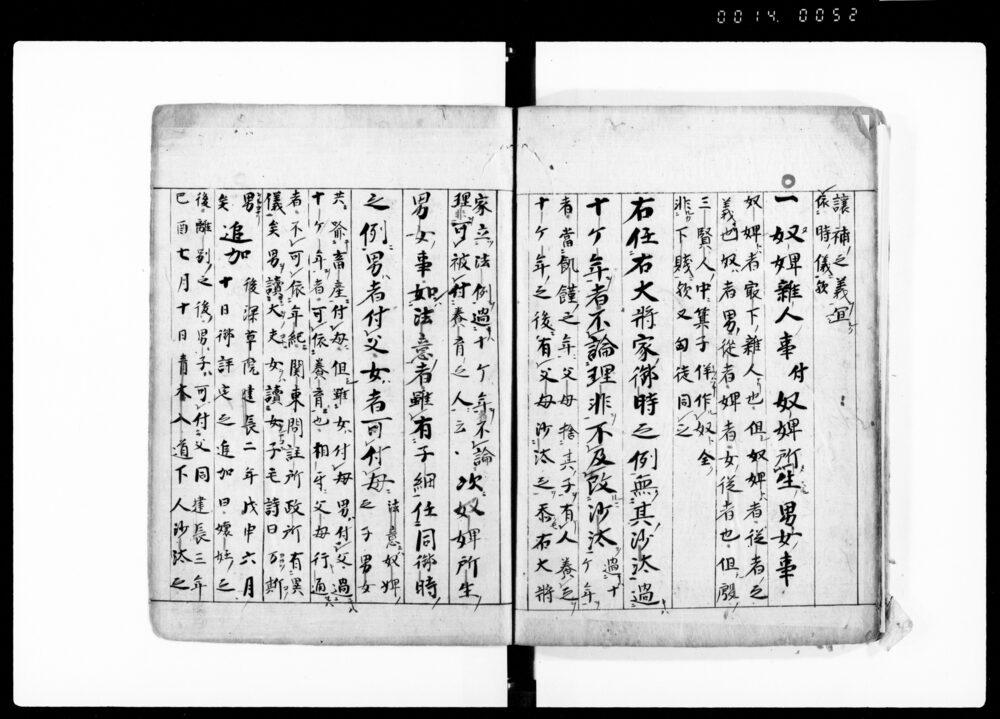 0014.0052
讓補之義宜
依時儀歟
一 奴婢雜人事 付 奴婢所生男女事
奴婢者最下雜人也但奴婢者從者之
義也奴者男從者婢者女從者也但殷
三賢人中箕子佯作奴全
非下賤歟又匈徒同之
右任右大將家御時之例無其沙汰過
十ケ年者不論理非不及改沙汰 過十ケ年
者當飢饉之年父母捨其子有人養之
十ケ年之後有父母沙汰之 右大將
家立法例過十ケ年不論
理非可被付養育之人云々 次奴婢所生
男女事如法意者雖有子細任同御時
之例男者付父女者可付母 法意奴婢之子男女
共 畜産付母但雖女付母男付父過
十ケ年者可依養育也相牙父母行通
者不可依年紀關東問註所政所有異
儀矣男讀大夫女讀女子毛詩曰
男 後深草院建長二年戊申六月
矣 追加 十日御評定之追加曰嫁娶之
後離別之後男子可付父同建長三年
己酉七月十日青木入道下人沙汰之